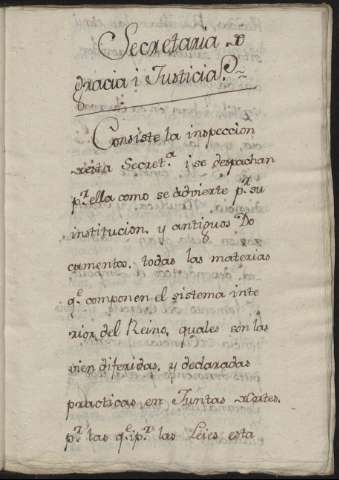 Secretaria de
gracia i Justicia.
Consiste la inspeccion
de esta Secret.ª i se despachan
p.r ella como se advierte p.r su
institucion, y antiguos Do
cumentos, todas las materias
q.e componen el sistema inte
rior del Reino, quales son las
vien diferidas, y declaradas
practicas en Juntas
p.r las q.e i p.r las Leies esta